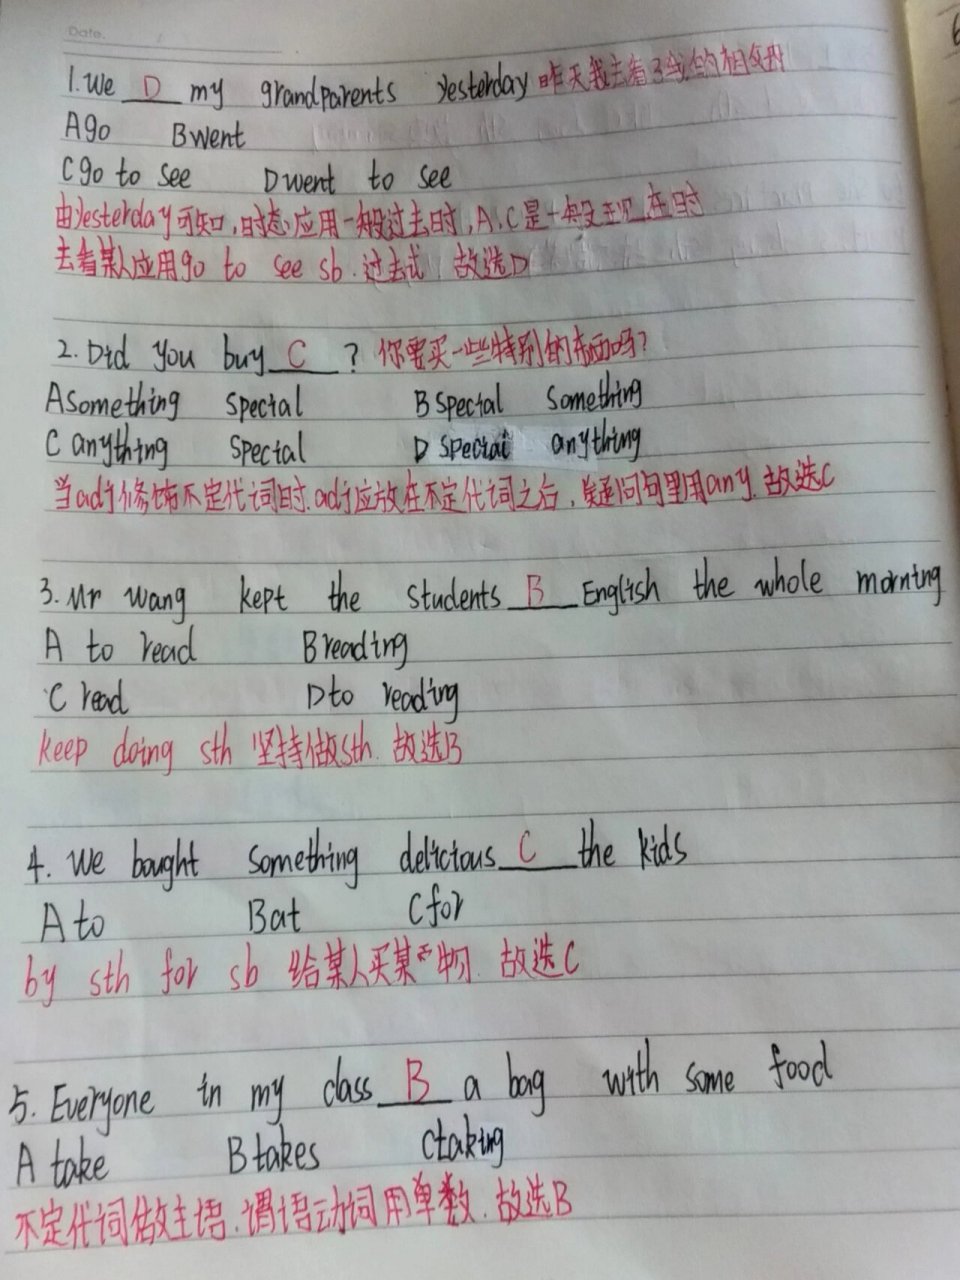 Date.
1. We D my grandparents yesterday 昨天我去看了我的祖父母
A go B went
C go to see D went to see
由yesterday可知,时态应用一般过去时,A、C是一般现在时
去看某人应用go to see sb.过去式 故选D
2. Did you buy C ? 你要买一些特别的东西吗?
A something special B special something
C anything special D special anything
当adj修饰不定代词时.adj应放在不定代词之后,疑问句里用any.故选C
3. Mr wang kept the students B English the whole morning
A to read B reading
C read D to reading
keep doing sth 坚持做sth. 故选B
4. We bought something delicious C the kids
A to B at C for
by sth for sb 给某人买某物. 故选C
5. Everyone in my class B a bag with some food
A take B takes C taking
不定代词做主语.谓语动词用单数.故选B